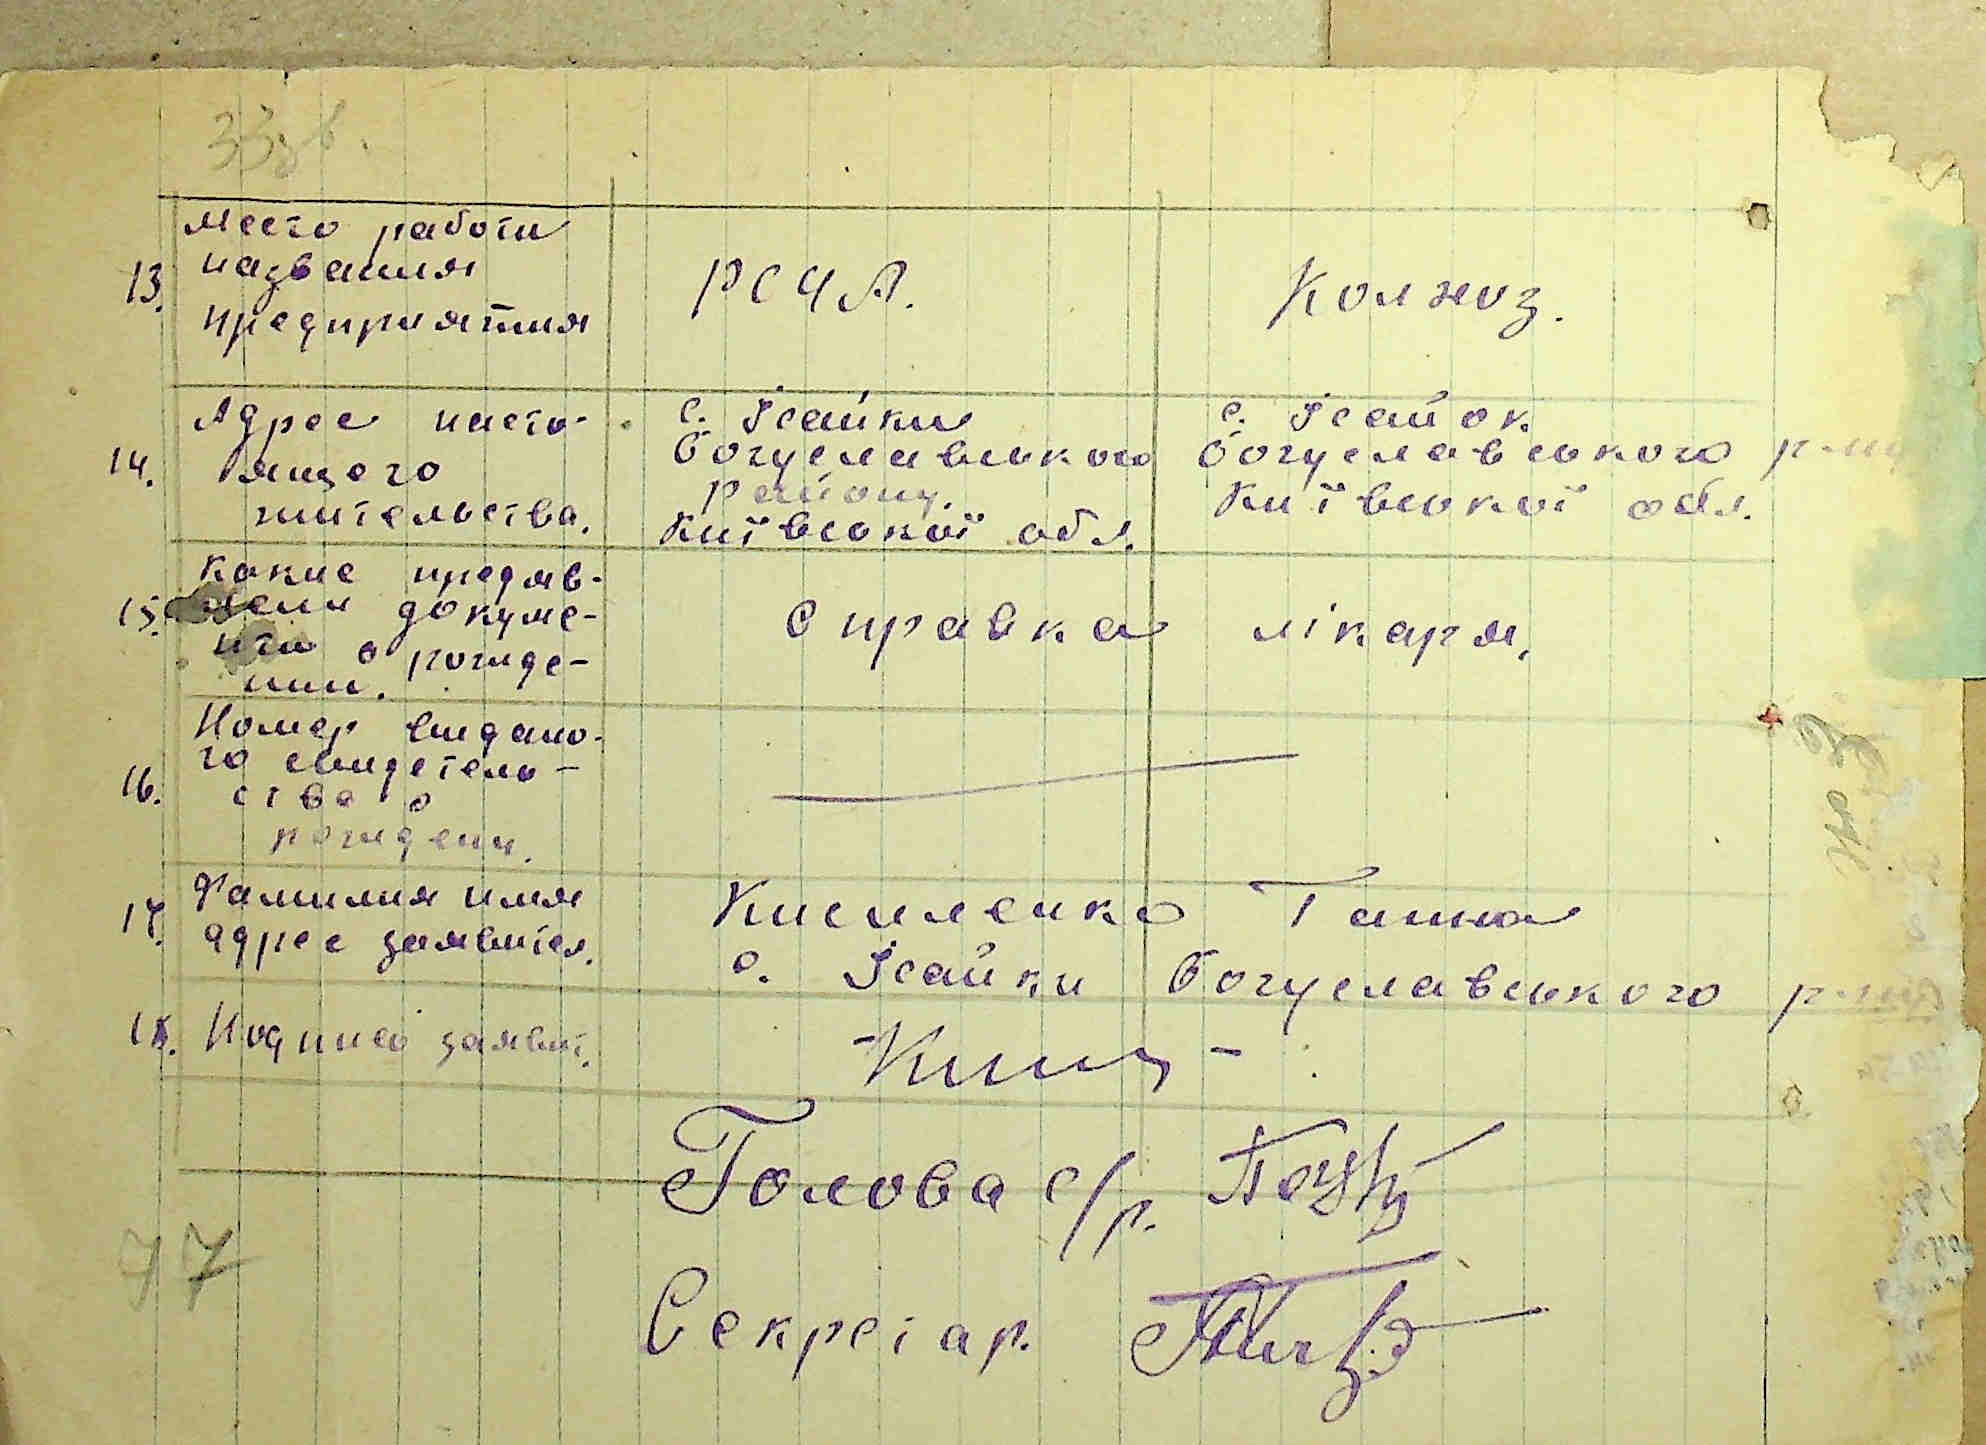 33зв.
место работи
13. названия
предприятия
РСЧА.
Колхоз.
Адрес насто-
14. ящего
жительства.
с. Ісайки
Богуславського
району.
Київської обл.
с. Ісайок
Богуславського р-ну
Київської обл.
какие предяв-
15. лени докуме-
нти о рожде-
нии.
Справка лікаря.
Номер видано-
го свидетель-
16. ства о
рождени.
Фамилия имя
17. адрес заявител.
Кисиленко Ганна
с. Ісайки Богуславського р-ну
18. Подпись заявит.
Голова с/р.
Секретар.
77